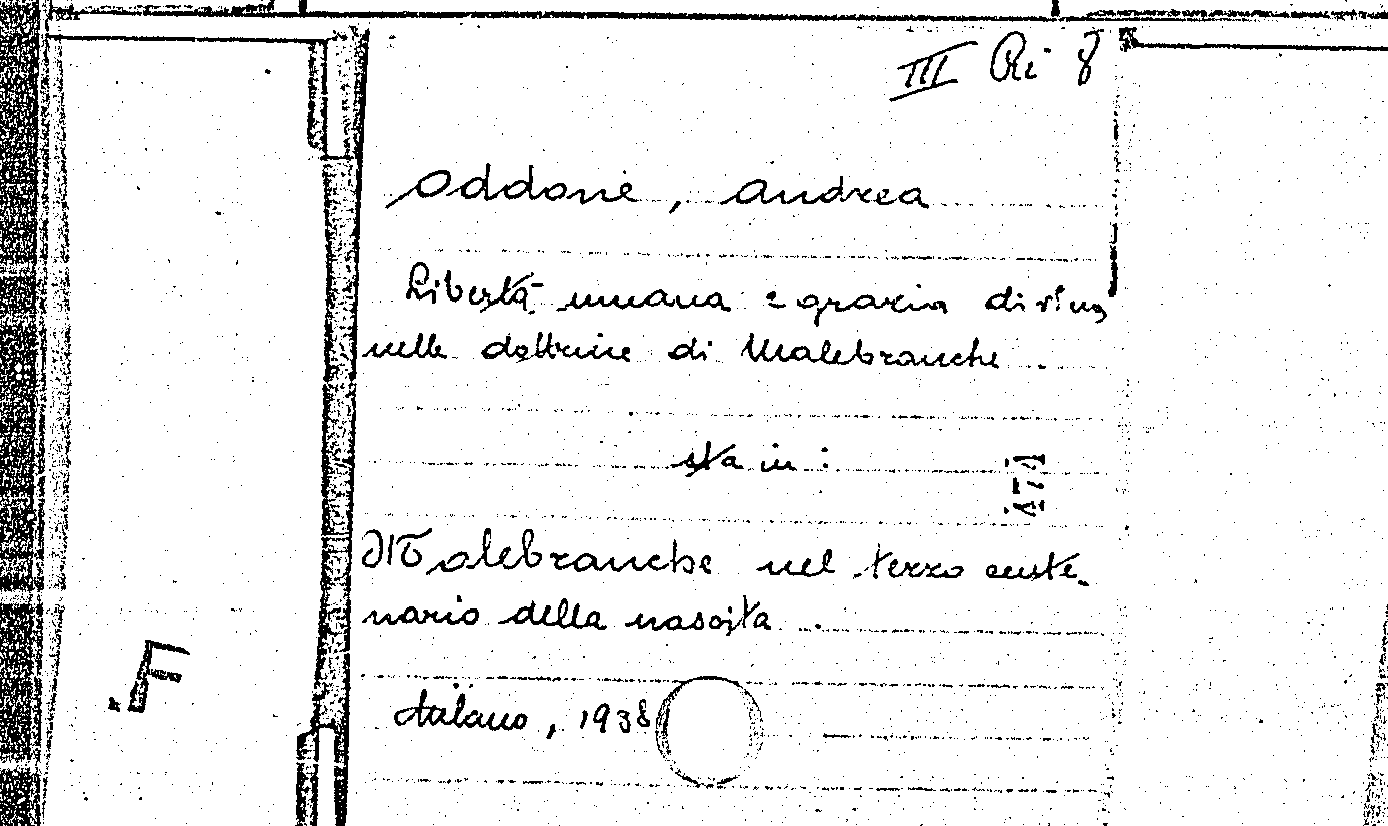 III Ri 8
Oddone, Andrea
Libertà umana e grazia divina
nelle dottrine di Malebranche.
sta in:
Malebranche nel terzo cente-
nario della nascita.
Milano, 1938
F